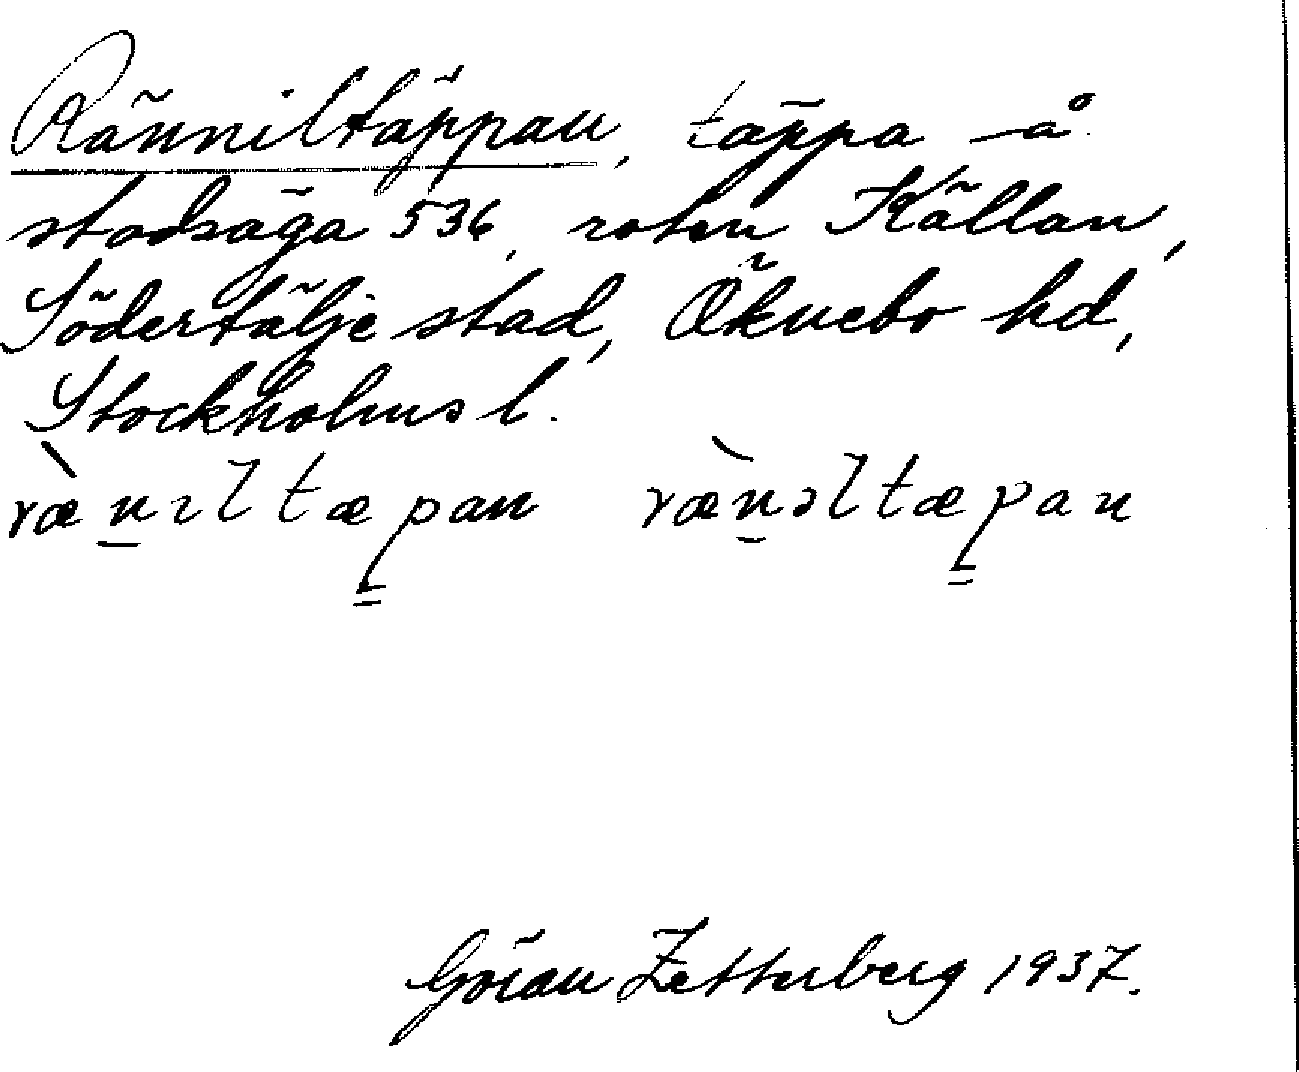 Ränniltäppan, täppa å
stadsäga 536, roten Källan,
Södertälje stad, Öknebo hd,
Stockholms l.
ræ̀nıltæpan ræ̀nəltæpan
Göran Zetterberg 1937.